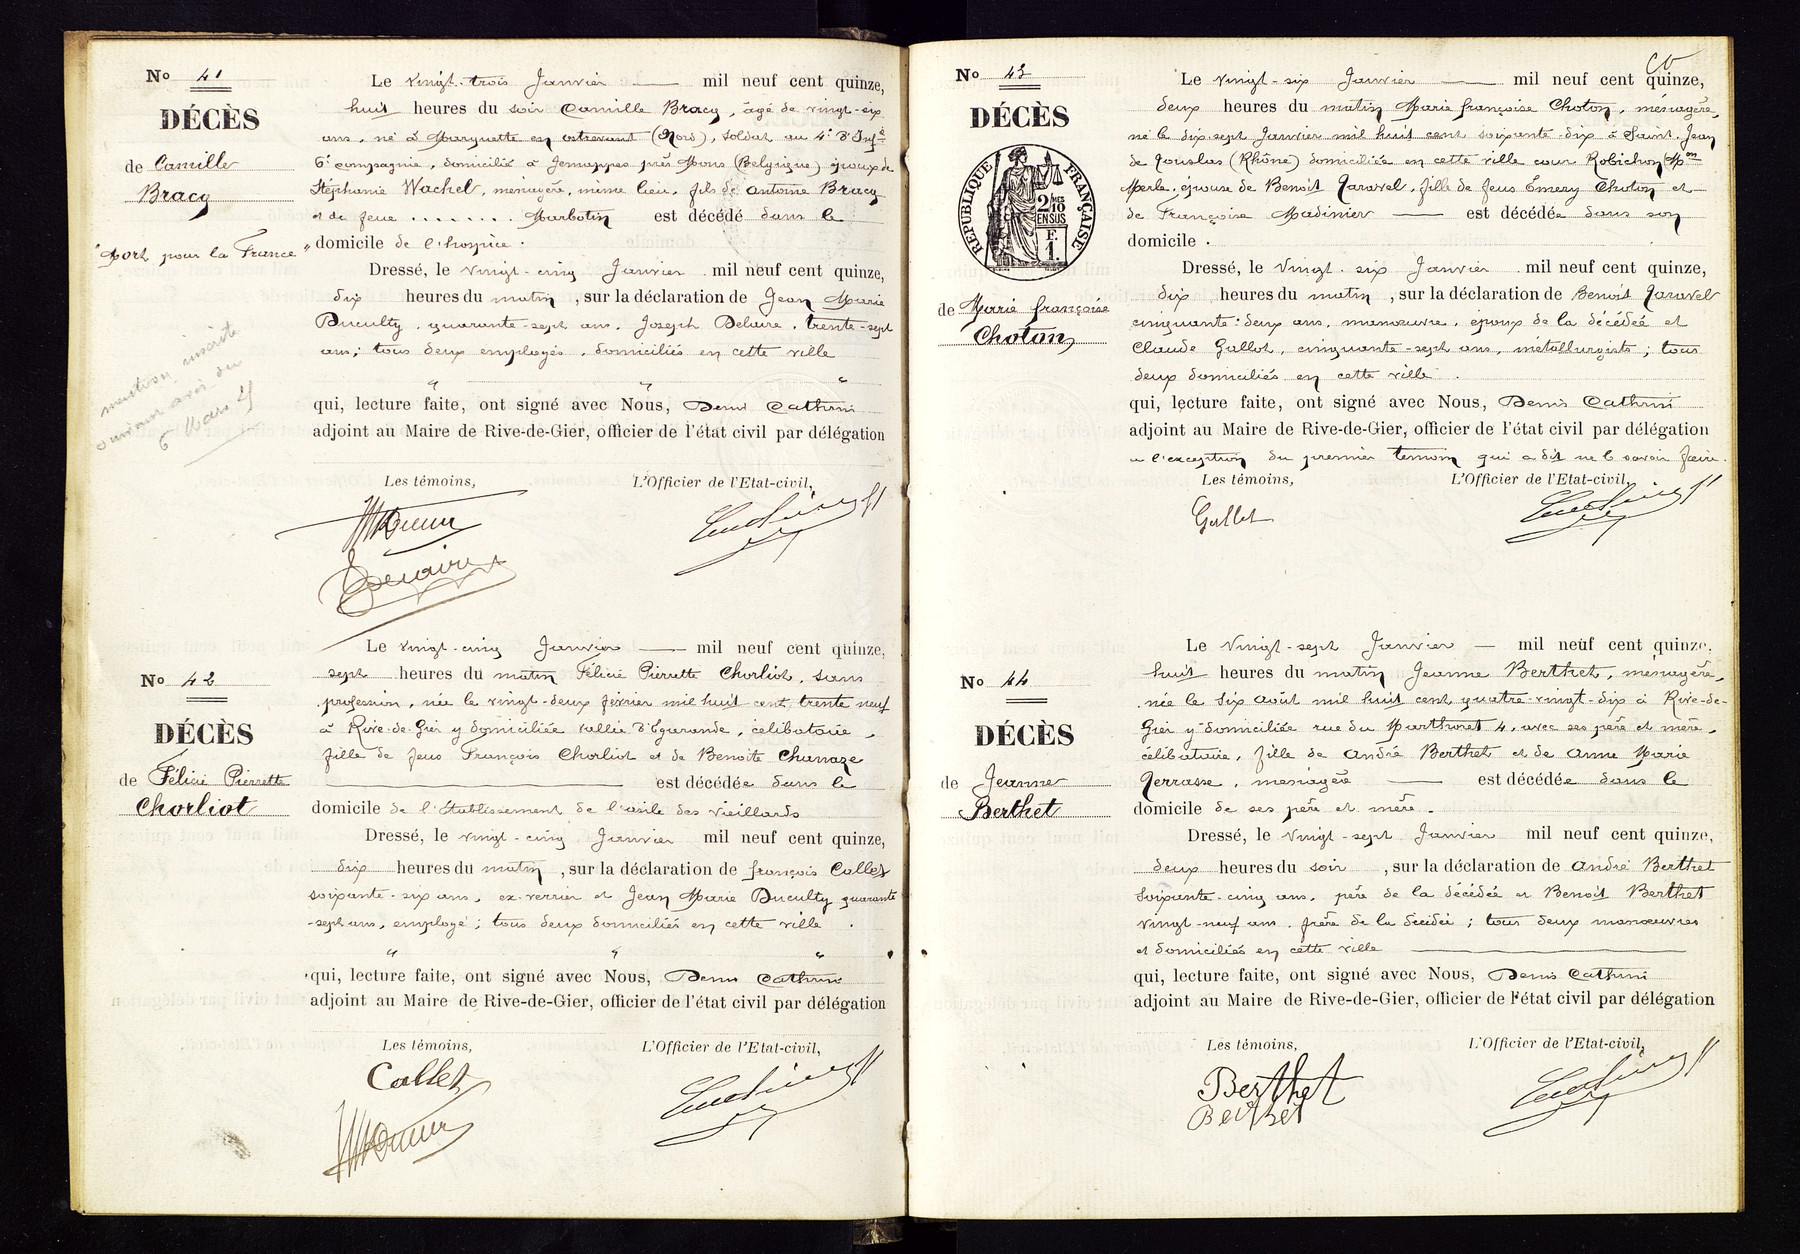 No 41
DÉCÈS
de Camille
Bracq
"Mort pour la France"
mention inscrite
suivant avis du
6 Mars
Le vingt-trois Janvier — mil neuf cent quinze,
huit heures du soir Camille Bracq, âgé de vingt-six
ans, né à Marquette en ostrevant (Nord), soldat au 4e d'Infie
6e compagnie, domicilié à Jemappes près Mons (Belgique) époux de
Stéphanie Wachel, ménagère, même lieu, fils de Antoine Bracq
et de feue ....... Marbotin est décédé dans le
domicile de l'hospice.
Dressé, le vingt-cinq Janvier mil neuf cent quinze,
dix heures du matin, sur la déclaration de Jean Marie
Duculty, quarante-sept ans, Joseph Delaire, trente-sept
ans; tous deux employés, domiciliés en cette ville
" " "
qui, lecture faite, ont signé avec Nous, Denis Cathrin
adjoint au Maire de Rive-de-Gier, officier de l'état civil par délégation
Les témoins, L'Officier de l'Etat-civil,
No 42
DÉCÈS
de Félicie Pierrette
Chorliot
Le vingt-cinq Janvier — mil neuf cent quinze,
sept heures du matin Félicie Pierrette Chorliot, sans
profession, née le vingt-deux février mil huit cent trente neuf
à Rive-de-Gier y domiciliée vallée d'Egarande, célibataire,
fille de feus François Chorliot et de Benoite Chanaze
— est décédée dans le
domicile de l'Etablissement de l'asile des vieillards
Dressé, le vingt-cinq Janvier mil neuf cent quinze,
dix heures du matin, sur la déclaration de François Collet
soixante-six ans, ex-verrier et Jean Marie Duculty quarante
-sept ans, employé; tous deux domiciliés en cette ville.
" " "
qui, lecture faite, ont signé avec Nous, Denis Cathrin
adjoint au Maire de Rive-de-Gier, officier de l'état civil par délégation
Les témoins, L'Officier de l'Etat-civil,
Collet
No 43
DÉCÈS
RÉPUBLIQUE FRANÇAISE
2/10 MES
EN SUS
F.
1.
de Marie françoise
Choton
Le vingt-six Janvier — mil neuf cent quinze,
deux heures du matin Marie françoise Choton, ménagère,
né le dix-sept Janvier mil huit cent soixante-dix à Saint-Jean
de Touslas (Rhône) domiciliée en cette ville cour Robichon Mon
Merle, épouse de Benoit Jaravel, fille de feus Émery Choton et
de Françoise Madinier — est décédée dans son
domicile.
Dressé, le vingt-six Janvier mil neuf cent quinze,
dix heures du matin, sur la déclaration de Benoit Jaravel
cinquante-deux ans, manœuvre, époux de la décédée et
Claude Gallot, cinquante-sept ans, métallurgiste; tous
deux domiciliés en cette ville.
qui, lecture faite, ont signé avec Nous, Denis Cathrin
adjoint au Maire de Rive-de-Gier, officier de l'état civil par délégation
à l'exception du premier temoin qui a dit ne le savoir faire.
Les témoins, L'Officier de l'Etat-civil,
Gallot
No 44
DÉCÈS
de Jeanne
Berthet
Le vingt-sept Janvier — mil neuf cent quinze,
huit heures du matin Jeanne Berthet, ménagère,
née le six août mil huit cent quatre-vingt-dix à Rive-de-
Gier y domiciliée rue du Marthoret 4, avec ses père et mère,
célibataire, fille de André Berthet et de Anne Marie
Jerrasse, ménagère — est décédée dans le
domicile de ses père et mère.
Dressé, le vingt-sept Janvier mil neuf cent quinze,
deux heures du soir, sur la déclaration de André Berthet
soixante-cinq ans, père de la décédée et Benoit Berthet
vingt-neuf ans, frère de la décédée; tous deux manœuvres
et domiciliés en cette ville —
qui, lecture faite, ont signé avec Nous, Denis Cathrin
adjoint au Maire de Rive-de-Gier, officier de l'état civil par délégation
Les témoins, L'Officier de l'Etat-civil,
Berthet
Berthet